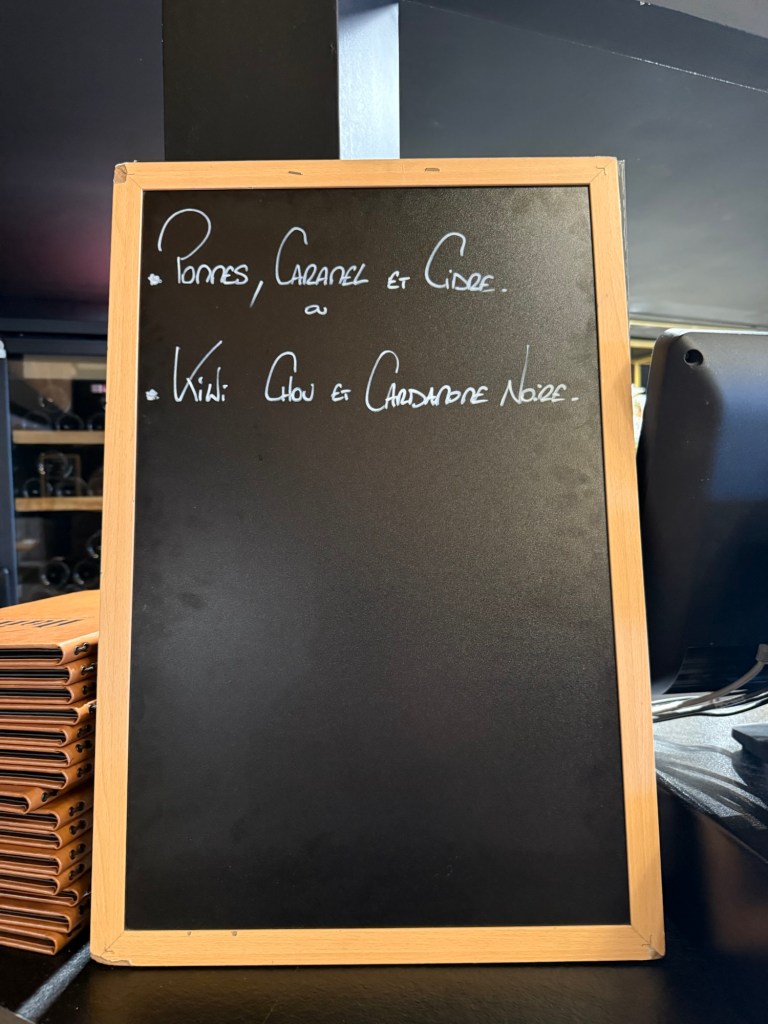 • Pommes, Caramel et Cidre.
ou
• Kiwi Chou et Cardamome Noire.